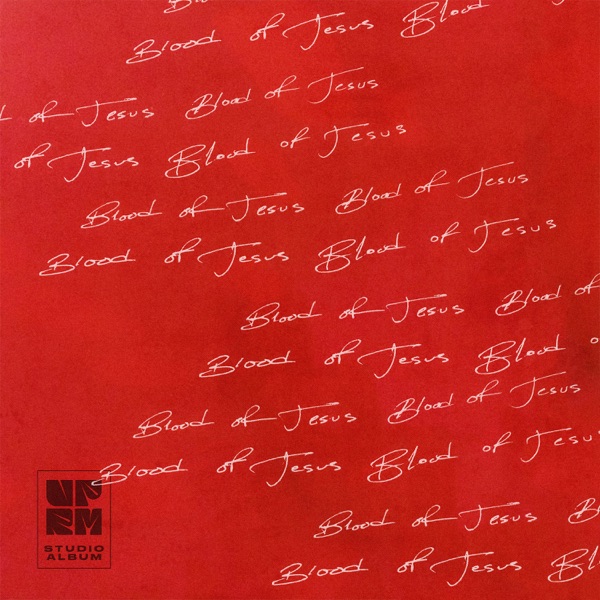 Blood
Blood of Jesus Blood
of Jesus Blood of Jesus
of Jesus Blood of Jesus
Blood of Jesus Blood of Jesus
Blood of Jesus Blood of Jesus
Blood of Jesus Blood of
Blood of Jesus Blood
Blood of Jesus Blood of Jesus
Blood of Jesus Blood of Jesus
Blood of Jesus
Blood of Jesus
UP
RM
STUDIO
ALBUM